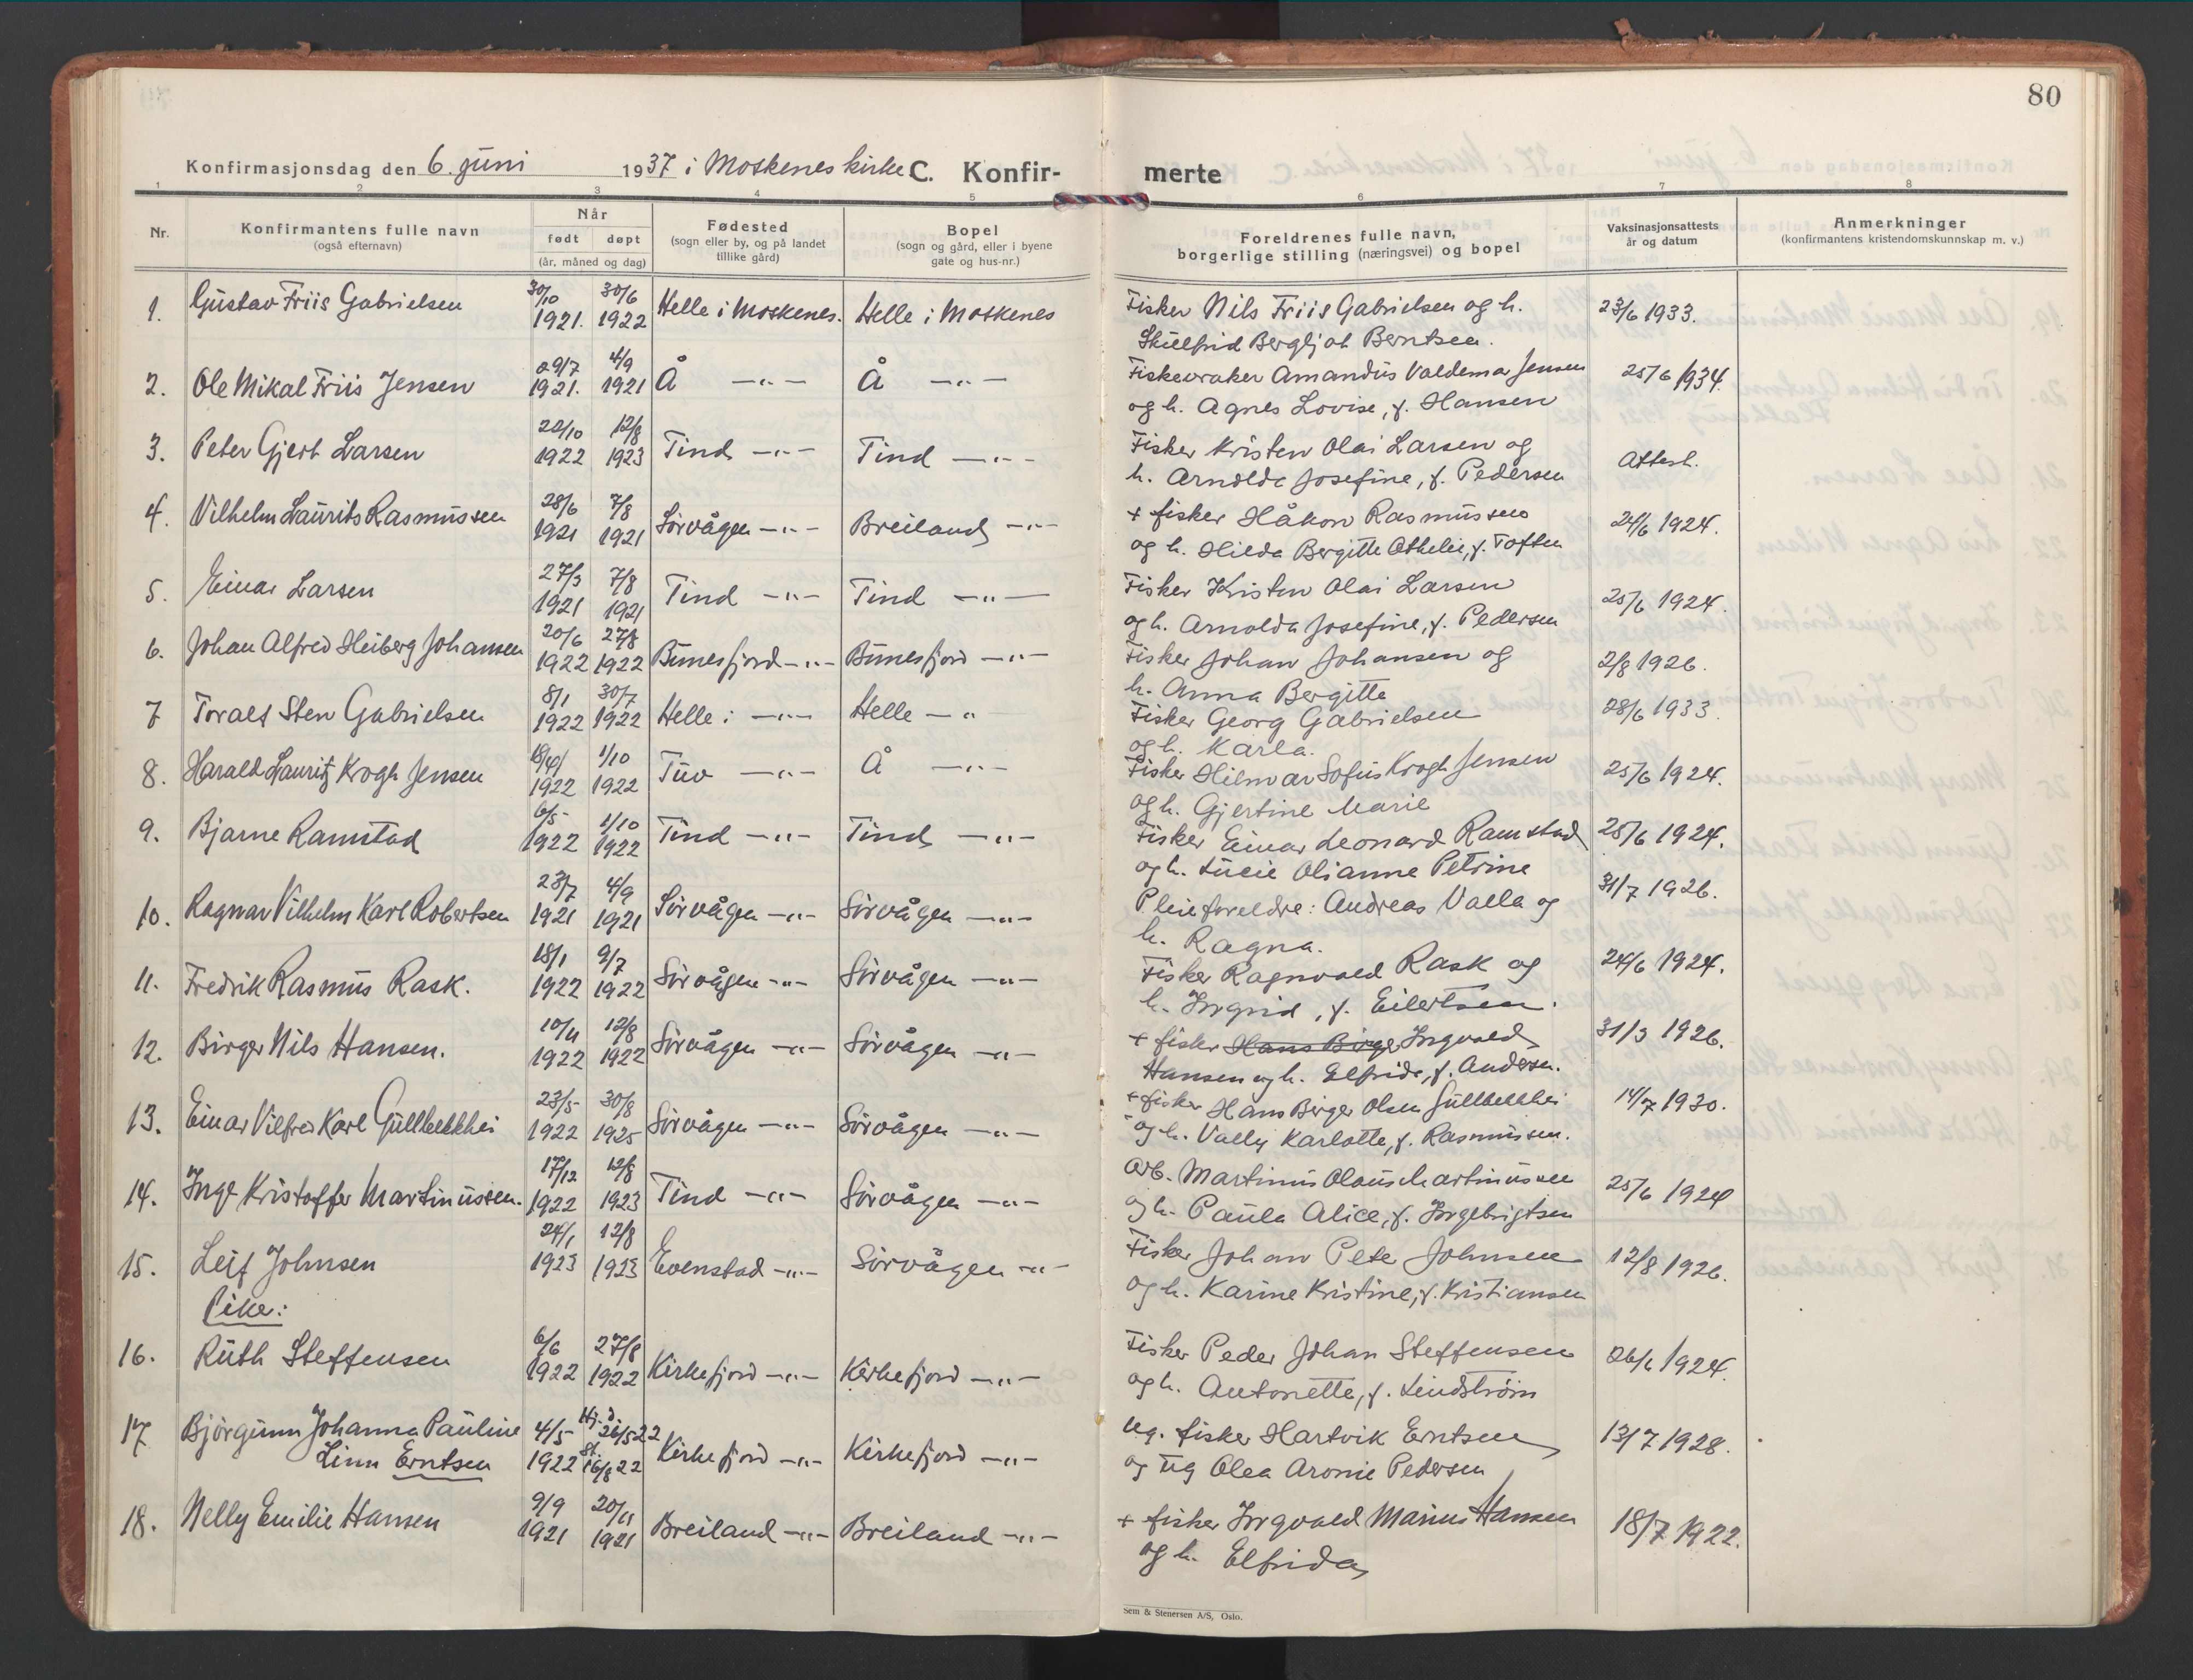 80
Konfirmasjonsdag den 6. juni 1937 i Moskenes kirke C. Konfir- merte
1 2 3 4 5 6 7 8
Nr. Konfirmantens fulle navn (også efternavn) Når født døpt (år, måned og dag) Fødested (sogn eller by, og på landet tillike gård) Bopel (sogn og gård, eller i byene gate og hus-nr.) Foreldrenes fulle navn, borgerlige stilling (næringsvei) og bopel Vaksinasjonsattests år og datum Anmerkninger (konfirmantens kristendomskunnskap m. v.)
1. Gustav Friis Gabrielsen 30/10 1921. 30/6 1922 Helle i Moskenes. Helle i Moskenes Fisker Nils Friis Gabrielsen og h. 23/6 1933.
Skulfrid Bergljot Berntsen.
2. Ole Mikal Friis Jensen 29/7 1921. 4/9 1921 Å —"— Å —"— Fiskevraker Amandus Valdemar Jensen 25/6 1934.
og h. Agnes Lovise, f. Hansen
3. Peter Gjert Larsen 22/10 1922 12/8 1923 Tind —"— Tind —"— Fisker Kristen Olai Larsen og Attest.
h. Arnolda Josefine, f. Pedersen
4. Vilhelm Laurits Rasmussen 28/6 1921 7/8 1921 Sørvågen —"— Breiland —"— + fisker Håkon Rasmussen 24/6 1924.
og h. Hilda Bergitte Othelie, f. Toften
5. Einar Larsen 27/3 1921 7/8 1921 Tind —"— Tind —"— Fisker Kristen Olai Larsen 25/6 1924.
og h. Arnolda Josefine, f. Pedersen
6. Johan Alfred Heiberg Johansen 20/6 1922 27/8 1922 Bunesfjord —"— Bunesfjord —"— Fisker Johan Johansen og 2/8 1926.
h. Anna Bergitte
7 Toralf Sten Gabrielsen 8/1 1922 30/7 1922 Helle i —"— Helle —" Fisker Georg Gabrielsen 28/6 1933.
og h. Karla.
8. Harald Lauritz Krogh Jensen 18/4 1922 1/10 1922 Tuv —"— Å —"— Fisker Hilmar Sofus Krogh Jensen 25/6 1924.
og h. Gjertine Marie
9. Bjarne Ramstad 6/5- 1922 1/10 1922 Tind —"— Tind —"— Fisker Einar Leonard Ramstad 25/6 1924.
og h. Lucie Olianne Petrine
10. Ragnar Vilhelm Karl Robertsen 23/7 1921 4/9 1921 Sørvågen —"— Sørvågen —"— Pleieforeldre: Andreas Valla og 31/7 1926.
h. Ragna.
11. Fredrik Rasmus Rask. 18/1 1922 9/7 1922 Sørvågen —"— Sørvågen —"— Fisker Ragnvald Rask og 24/6 1924.
h. Ingrid, f. Eilertsen.
12. Birger Nils Hansen. 10/4 1922 12/8 1922 Sørvågen —"— Sørvågen —"— + fisker Hans Birger Ingvald 31/3 1926.
Hansen og h. Elfrida, f. Andersen.
13. Einar Vilfred Karl Gullbekkhei 23/5- 1922 30/8 1925 Sørvågen —"— Sørvågen —"— + fisker Hans Birger Olsen Gullbekkhei 14/7 1930.
og h. Vally Karlotte, f. Rasmussen.
14. Inge Kristoffer Martinussen. 17/12 1922 12/8 1923 Tind —"— Sørvågen —"— Arb. Martinus Olaus Martinussen 25/6 1924
og h. Paula Alice, f. Ingebrigtsen
15. Leif Johnsen 24/1 1923 12/8 1923 Evenstad —"— Sørvågen —"— Fisker Johan Peter Johnsen 12/8 1926.
og h. Karine Kristine, f. Kristiansen
Pike:
16. Ruth Steffensen 6/6 1922 27/8 1922 Kirkefjord —"— Kirkefjord —"— Fisker Peder Johan Steffensen 26/6 1924.
og h. Antonette, f. Lindstrøm
17 Bjørgunn Johanna Pauline 4/5- 1922 Hj. d. 26/5 22 Kirkefjord —"— Kirkefjord —"— Ug. fisker Hartvik Erntsen 13/7 1928.
Linn Erntsen St. 16/8 22 og ug Olea Aronie Pedersen
18. Nelly Emilie Hansen 9/9 1921 20/11 1921 Breiland —"— Breiland —"— + fisker Ingvald Marius Hansen 18/7 1922.
og h. Elfrida
Sem & Stenersen A/S, Oslo.